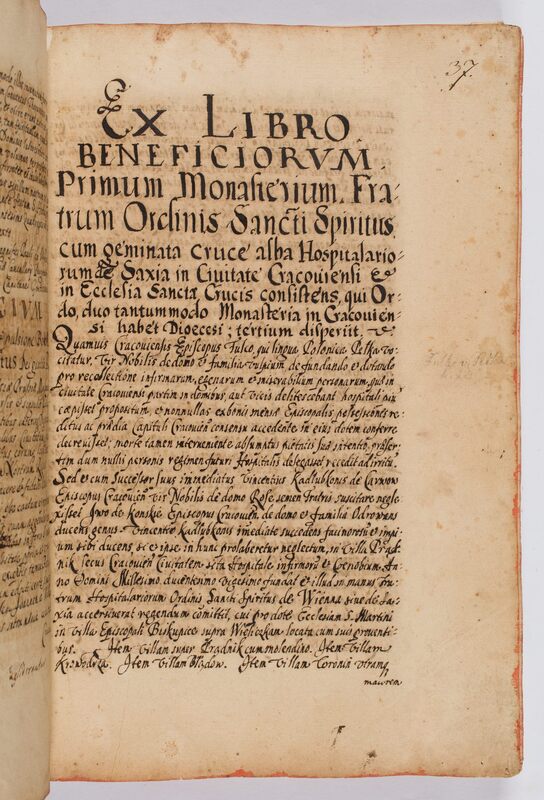 37.
Ex Libro
Beneficiorum.
Primum Monasterium Fra-
trum Ordinis Sancti Spiritus,
cum geminata cruce alba Hospitalario-
rum de Saxia in Civitate Cracoviensi et
in Ecclesia Sanctæ Crucis consistens, qui Or-
do, duo tantummodo Monasteria in Cracovien-
si habet Dioecesi; tertium disperiit.
Quamuis Cracouiensis Episcopus Fulco, qui lingua Polonica Pelka vo-
citatur, vir Nobilis de domo et familia Vulpium, de fundando et dotando
pro recollectione infirmarum, egenarum et miserabilium personarum, quæ in
Ciuitate Cracouiensi partim in domibus, aut vicis delitescebant hospitali piū
cæpisset propositum, et nonnullos ex bonis mensæ Episcopalis
ditus ac prædia Capituli consensu accedente in eius dotem conferre
decreuisset; morte tamen interueniente absumptus pietatis suæ intentio, præser-
tim dum nulli personæ regimen futuri Hospitalis delegasset recedit ad irritū.
Sed et cum Successor suus immediatus Vincentius Kadlubkonis de Carnow
Episcopus vir Nobilis de domo Rose semen fratris suscitare negle-
xisset Iwo de Konskie Episcopus de domo et familia Odrowans
ducens genus Vincentio Kadlubkonis imediate succedens facinorosū et impi-
um sibi ducens si et ipse in hunc prolaberetur neglectum, in Villa Prąd-
nik secus Ciuitatem sita Hospitale infirmorū et Cenobium An-
no Domini Millesimo ducentesimo vigesimo fundat et illud in manus fra-
trum Hospitalariorum Ordinis Sancti Spiritus de Wienna siue de Sa-
xia accersiuerat regendum comittit, cui pro dote Ecclesiam S. Martini
in Villa Episcopali Biskupice supra Wieliczkam locata cum suis prouenti-
bus. Item Villam super Prądnik cum molendino. Item Villam
Krowodrza. Item Villam Item Villam
maiorem